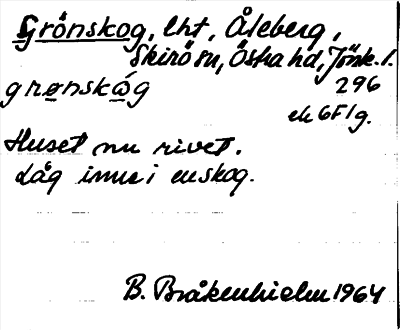 Grönskog, lht, Åleberg,
Skirö sn, Östra hd, Jönk. l.
grønskώg 296
ek 6F1g.
Huset nu rivet.
Låg inne i en skog.
B. Bråkenhielm 1964